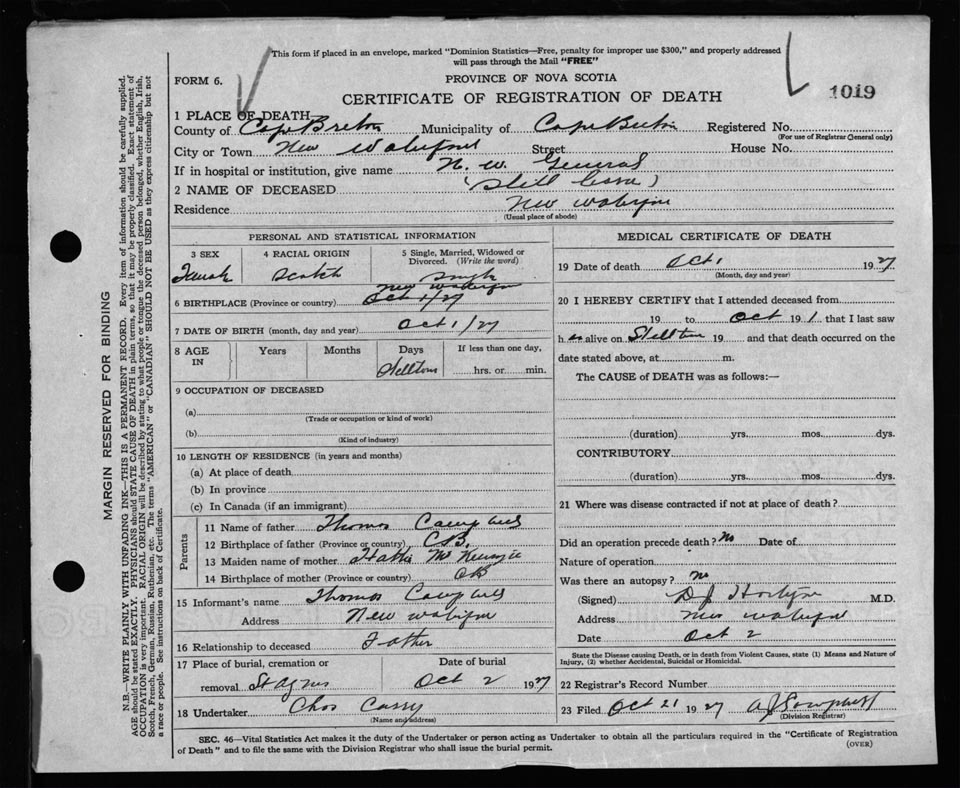 This form if placed in an envelope, marked "Dominion Statistics—Free, penalty for improper use $300," and properly addressed
will pass through the Mail "FREE"
FORM 6.
PROVINCE OF NOVA SCOTIA
1019
CERTIFICATE OF REGISTRATION OF DEATH
1 PLACE OF DEATH
County of Cape Breton Municipality of Cape Breton Registered No.
(For use of Registrar General only)
City or Town New Street House No.
If in hospital or institution, give name N. W. General
2 NAME OF DECEASED (Still born)
Residence New
(Usual place of abode)
PERSONAL AND STATISTICAL INFORMATION
3 SEX
Female
4 RACIAL ORIGIN
Scotch
5 Single, Married, Widowed or
Divorced. (Write the word)
Single
6 BIRTHPLACE (Province or country) New
Oct 1/27
7 DATE OF BIRTH (month, day and year) Oct 1/27
8 AGE IN
Years Months Days
If less than one day,
hrs. or min.
9 OCCUPATION OF DECEASED
(a)
(Trade or occupation or kind of work)
(b)
(Kind of industry)
10 LENGTH OF RESIDENCE (in years and months)
(a) At place of death
(b) In province
(c) In Canada (if an immigrant)
Parents
11 Name of father Thomas Campbell
12 Birthplace of father (Province or country) C.B.
13 Maiden name of mother McKenzie
14 Birthplace of mother (Province or country) CB
15 Informant's name Thomas Campbell
Address New
16 Relationship to deceased Father
17 Place of burial, cremation or
removal St Agnes
Date of burial
Oct 2 1927
18 Undertaker Chas
(Name and address)
MEDICAL CERTIFICATE OF DEATH
19 Date of death Oct 1 1927
(Month, day and year)
20 I HEREBY CERTIFY that I attended deceased from
19 to Oct 19 1 that I last saw
h alive on 19 and that death occurred on the
date stated above, at m.
The CAUSE of DEATH was as follows:—
(duration) yrs. mos. dys.
CONTRIBUTORY
(duration) yrs. mos. dys.
21 Where was disease contracted if not at place of death?
Did an operation precede death? No Date of
Nature of operation
Was there an autopsy? no
(Signed) M.D.
Address New
Date Oct 2
State the Disease causing Death, or in death from Violent Causes, state (1) Means and Nature of
Injury, (2) whether Accidental, Suicidal or Homicidal.
22 Registrar's Record Number
23 Filed Oct 21 1927
(Division Registrar)
SEC. 46—Vital Statistics Act makes it the duty of the Undertaker or person acting as Undertaker to obtain all the particulars required in the "Certificate of Registration
of Death" and to file the same with the Division Registrar who shall issue the burial permit.
(OVER)
MARGIN RESERVED FOR BINDING
N.B.—WRITE PLAINLY WITH UNFADING INK—THIS IS A PERMANENT RECORD. Every item of information should be carefully supplied.
AGE should be stated EXACTLY. PHYSICIANS should STATE CAUSE OF DEATH in plain terms, so that it may be properly classified. Exact statement of
OCCUPATION is very important. RACIAL ORIGIN will be described by stating to what people or tongue the deceased person belonged, whether English, Irish,
Scotch, French, German, Russian, Ruthenian, etc. The terms "AMERICAN" or "CANADIAN" SHOULD NOT BE USED as they express citizenship but not
a race or people. See instructions on back of Certificate.